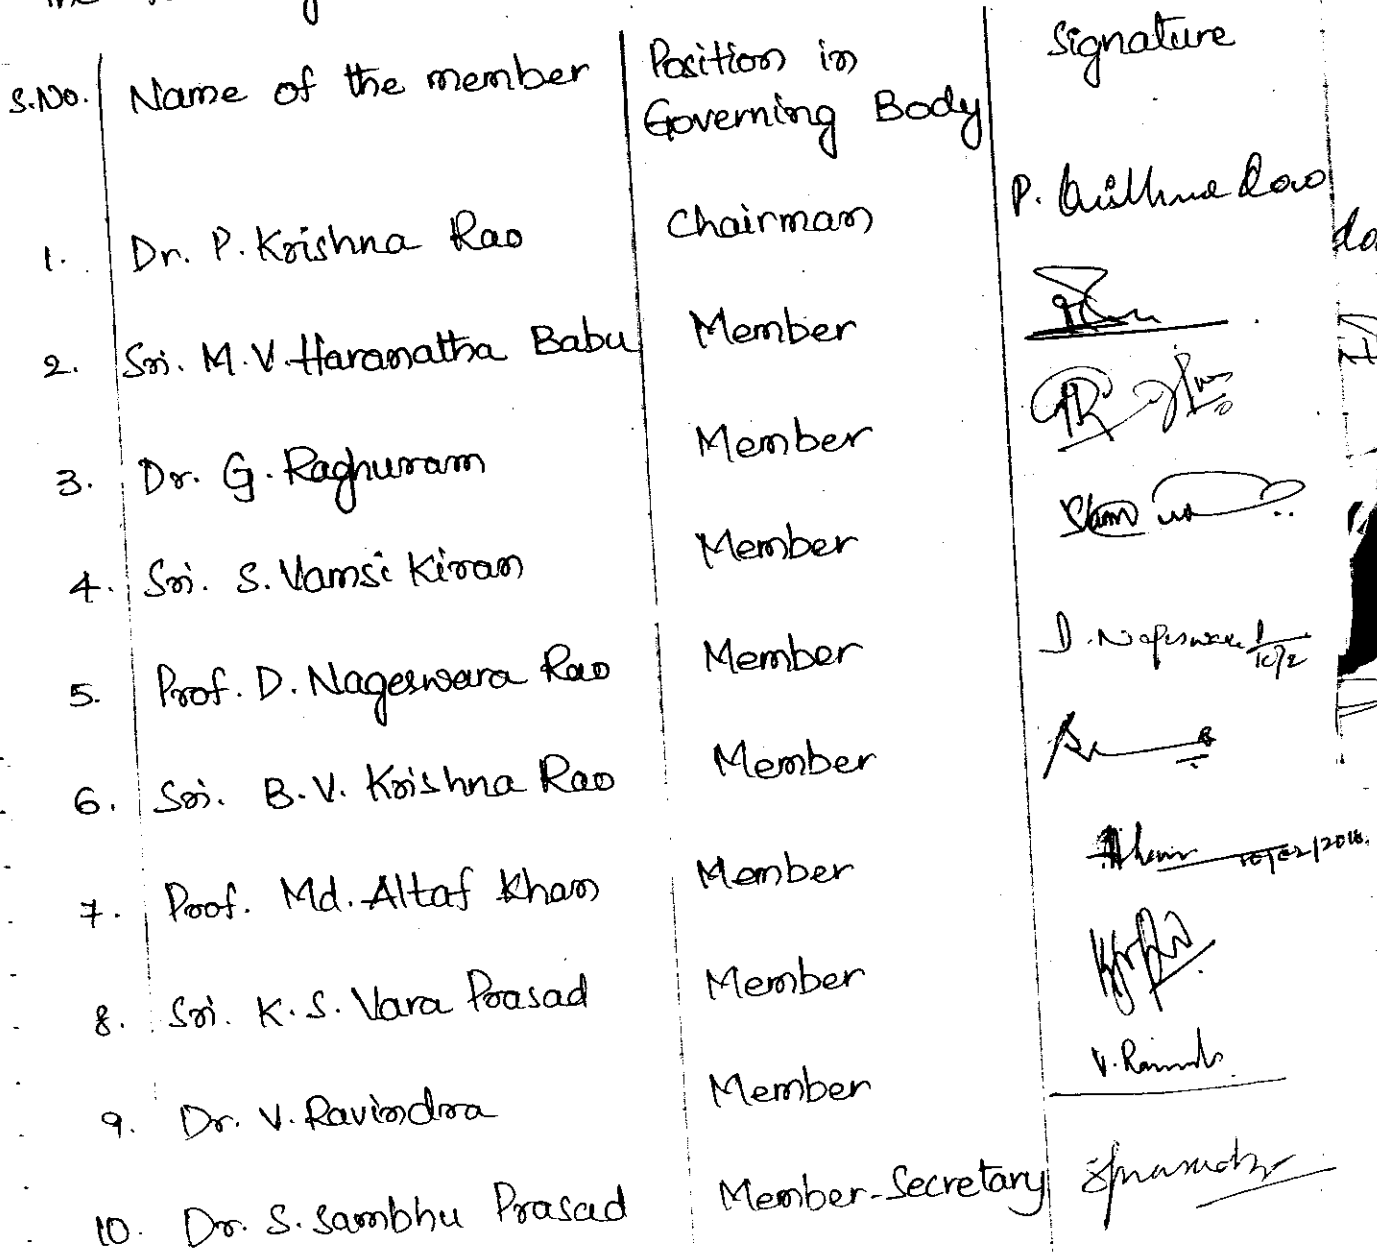 the
S.No. Name of the member Position in Governing Body Signature
1. Dr. P. Krishna Rao Chairman P. Krishna Rao
2. Sri. M.V. Haranatha Babu Member
3. Dr. G. Raghuram Member
4. Sri. S. Vamsi Kiran Member
5. Prof. D. Nageswara Rao Member D. Nageswara
6. Sri. B.V. Krishna Rao Member
7. Prof. Md. Altaf Khan Member
8. Sri. K.S. Vara Prasad Member
9. Dr. V. Ravindra Member V.
10. Dr. S. Sambhu Prasad Member-Secretary